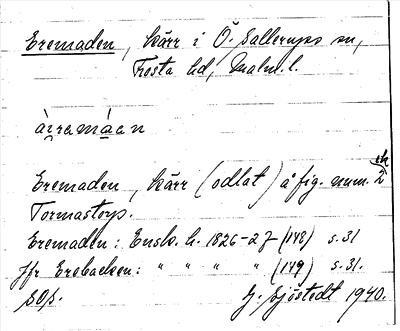 Eremaden, kärr i Ö. Sallerups sn,
Frosta hd, Malm. l.
Eremaden, kärr (odlat) å fig. num. 2
Tormastorp.
Eremaden: Ensk. h. 1826-27 (148) s. 31
Jfr Erebacken: " " " " (149) s. 31.
G. Sjöstedt 1940.